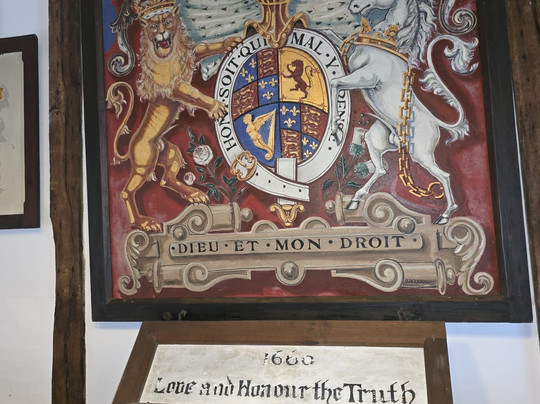 HONI·SOIT·QUI·MAL·Y·
·DIEU·ET·MON·DROIT·
1660
Love and Honour the Truth